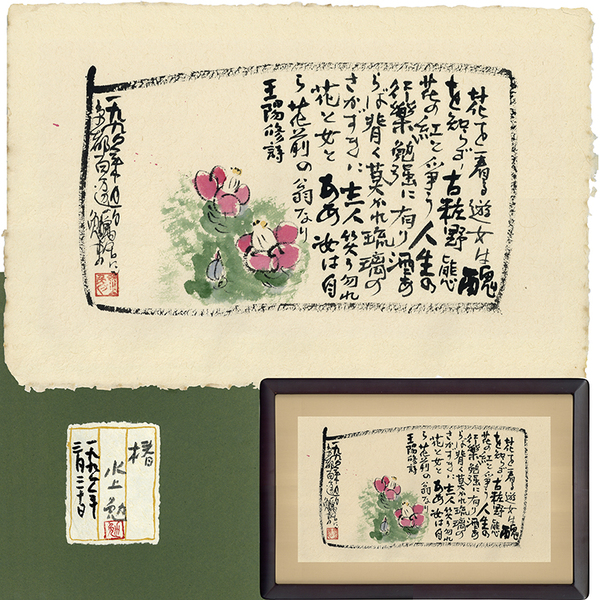 花を看る遊女は醜
を知らず 古粧野態
花の紅と争う人生の
行樂勉強に有り酒あ
らば背く莫かれ琉璃の
さかずきに 主人笑う勿れ
花と女と ああ 汝は自
ら花前の翁なり
王陽脩詩
椿
水上 勉